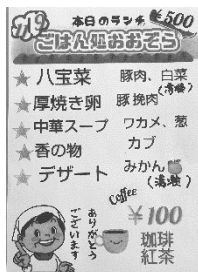 7/9
本日のランチ ¥500
ごはん処おおぞら
★八宝菜 豚肉、白菜
(湯城)
★厚焼き卵 豚挽肉
★中華スープ ワカメ、葱
★香の物 カブ
★デザート みかん
Coffee
¥100
珈琲
紅茶
ありがとう
ございます